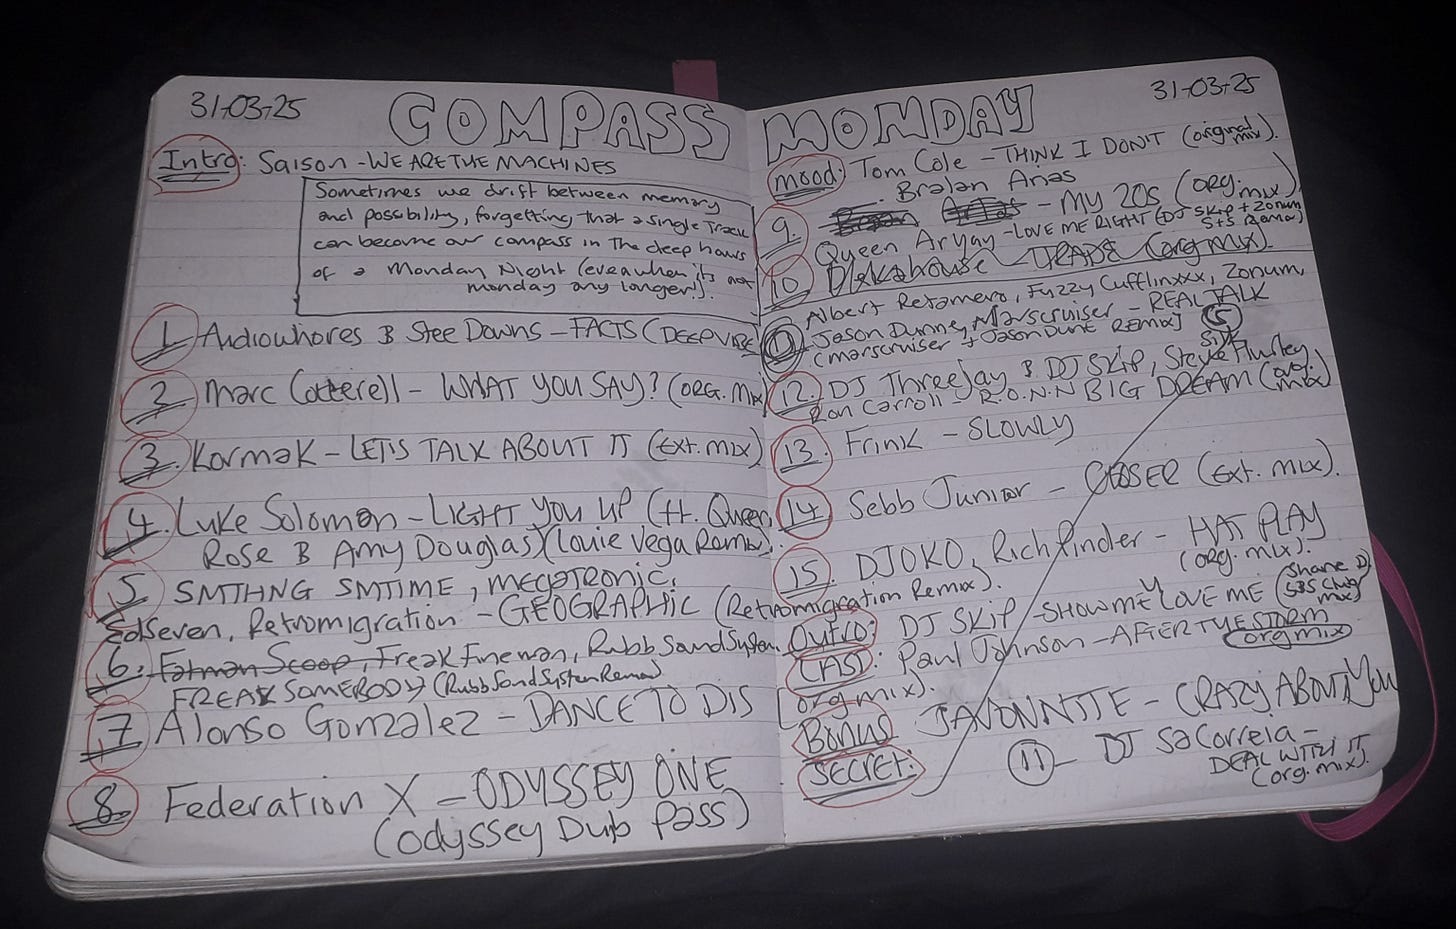 31-03-25 COMPASS
Intro: Saison - WE ARE THE MACHINES
Sometimes we drift between memory
and possibility, forgetting that a single track
can become our compass in the deep hours
of a Monday Night (even when it's not
monday any longer!).
1. Audiowhores & Stee Downs - FACTS (DEEPVIBE
2. Marc Cotterell - WHAT YOU SAY? (ORG. Mix)
3. Kormak - LET'S TALK ABOUT IT (Ext. mix)
4. Luke Solomon - LIGHT YOU UP (ft. Queen
Rose & Amy Douglas) (Louie Vega Remix).
5. SMTHNG SMTIME, megatronic,
EdSeven, Retromigration - GEOGRAPHIC (Retromigration Remix).
6. Fatman Scoop, Freak Fineman, Rubb Sound System.
FREAK SOMEBODY (Rubb Sound System Remix)
7. Alonso Gonzalez - DANCE TO DIS
8. Federation X - ODYSSEY ONE
(Odyssey Dub Pass)
MONDAY 31-03-25
mood: Tom Cole - THINK I DON'T (original mix).
Bralan Arias
9. - MY 20s (ORG. mix)
Queen Aryay - LOVE ME RIGHT (DJ Skip + Zonum
S+S Remix)
10. Diskohouse - (org mix).
Albert Retamero, Fuzzy Cufflinxxx, Zonum,
Jason Dunne, Marscruiser - REAL TALK
(marscruiser + Jason Dunne Remix) S
12. DJ ThreeJay & DJ Skip, Steve Silk Hurley
Ron Carroll - R.O.N.N BIG DREAM (org. mix)
13. Frink - SLOWLY
14. Sebb Junior - CLOSER (Ext. mix).
15. DJOKO, Rich Pinder - HAT PLAY
(org. mix).
Outro: DJ SKIP - SHOW ME Y LOVE ME (Shane D
SBS Chug mix)
LAST: Paul Johnson - AFTER THE STORM
org mix
(org mix).
Bonus JAVONNTTE - CRAZY ABOUT YOU
Secret:
11 - DJ Sacorreia -
DEAL WITH IT
(org. mix).